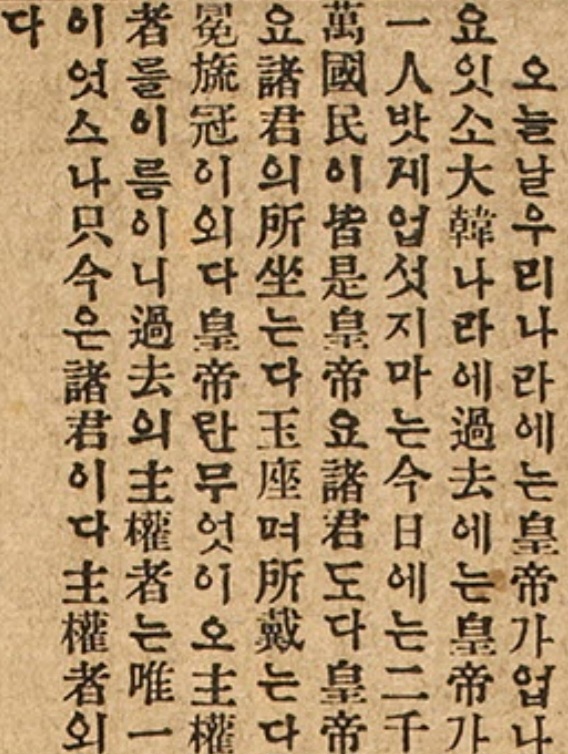 오늘날우리나라에는皇帝가업나
요잇소大韓나라에過去에는皇帝가
一人밧게업섯지마는今日에는二千
萬國民이皆是皇帝요諸君도다皇帝
요諸君의所坐는다玉座며所戴는다
冕旒冠이외다皇帝란무엇이오主權
者를이름이니過去의主權者는唯一
이엇스나只今은諸君이다主權者외
다